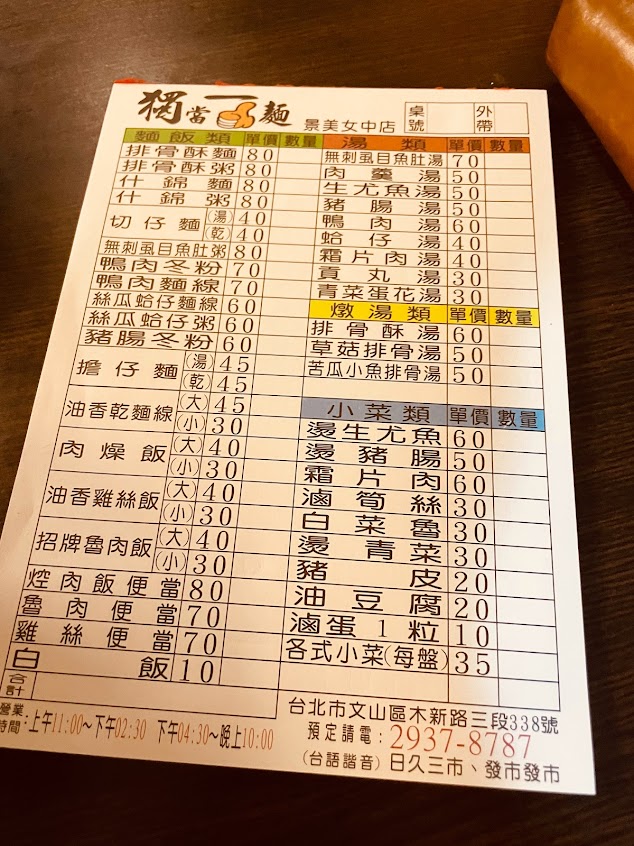 獨當一麵 景美女中店 桌號 外帶
麵飯類 單價 數量
排骨酥麵 80
排骨酥粥 80
什錦麵 80
什錦粥 80
切仔麵 (湯) 40
(乾) 40
無刺虱目魚肚粥 80
鴨肉冬粉 70
鴨肉麵線 70
絲瓜蛤仔麵線 60
絲瓜蛤仔粥 60
豬腸冬粉 60
擔仔麵 (湯) 45
(乾) 45
油香乾麵線 (大) 45
(小) 30
肉燥飯 (大) 40
(小) 30
油香雞絲飯 (大) 40
(小) 30
招牌魯肉飯 (大) 40
(小) 30
焢肉飯便當 80
魯肉便當 70
雞絲便當 70
白飯 10
合計
湯類 單價 數量
無刺虱目魚肚湯 70
肉羹湯 50
生尤魚湯 50
豬腸湯 50
鴨肉湯 60
蛤仔湯 40
霜片肉湯 40
貢丸湯 30
青菜蛋花湯 30
燉湯類 單價 數量
排骨酥湯 60
草菇排骨湯 50
苦瓜小魚排骨湯 50
小菜類 單價 數量
燙生尤魚 60
燙豬腸 50
霜片肉 60
滷筍絲 30
白菜魯 30
燙青菜 30
豬皮 20
油豆腐 20
滷蛋1粒 10
各式小菜(每盤) 35
營業時間:上午11:00~下午02:30 下午04:30~晚上10:00
台北市文山區木新路三段338號
預定請電:2937-8787
(台語諧音)日久三市、發市發市